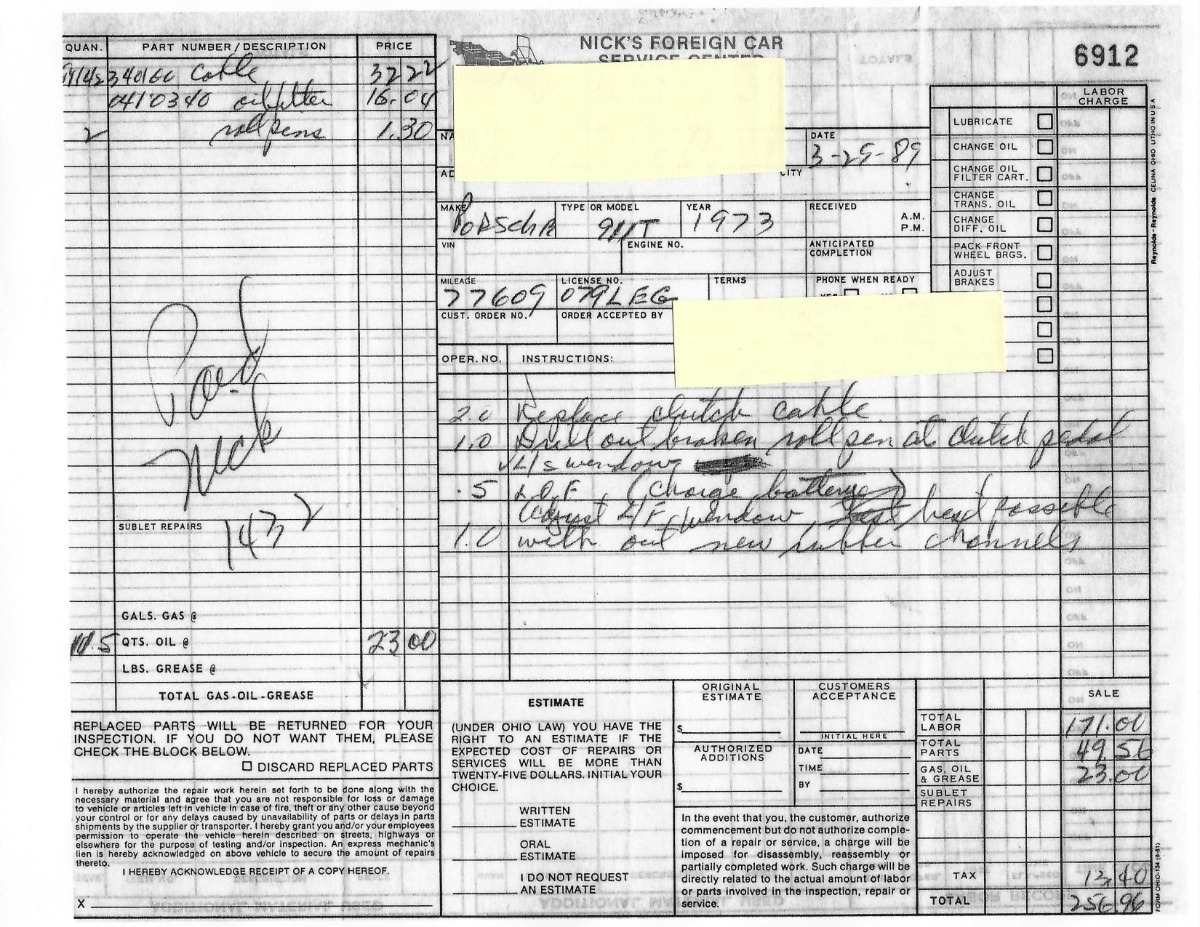 NICK'S FOREIGN CAR
SERVICE CENTER
6912
QUAN. PART NUMBER/DESCRIPTION PRICE
340160 Cable 32 22
0410340 oil filter 16.04
2 roll pens 1.30
Paid
Nick
1432
SUBLET REPAIRS
GALS. GAS @
QTS. OIL @ 23 00
LBS. GREASE @
TOTAL GAS-OIL-GREASE
DATE
3-29-89
CITY
MAKE TYPE OR MODEL YEAR RECEIVED A.M.
P.M.
Porsche 911T 1973
VIN ENGINE NO. ANTICIPATED
COMPLETION
MILEAGE LICENSE NO. TERMS PHONE WHEN READY
77609 079LEG
CUST. ORDER NO. ORDER ACCEPTED BY
OPER. NO. INSTRUCTIONS:
2.0 Replace clutch cable
1.0 Drill out broken roll pen at clutch pedal
L/s window
.5 L.O.F. (Charge battery)
(adjust L/F window best possible
1.0 with out new rubber channels
LABOR
CHARGE
LUBRICATE
CHANGE OIL
CHANGE OIL
FILTER CART.
CHANGE
TRANS. OIL
CHANGE
DIFF. OIL
PACK FRONT
WHEEL BRGS.
ADJUST
BRAKES
Reynolds + Reynolds CELINA OHIO LITHO IN U.S.A.
REPLACED PARTS WILL BE RETURNED FOR YOUR
INSPECTION. IF YOU DO NOT WANT THEM, PLEASE
CHECK THE BLOCK BELOW.
DISCARD REPLACED PARTS
I hereby authorize the repair work herein set forth to be done along with the
necessary material and agree that you are not responsible for loss or damage
to vehicle or articles left in vehicle in case of fire, theft or any other cause beyond
your control or for any delays caused by unavailability of parts or delays in parts
shipments by the supplier or transporter. I hereby grant you and/or your employees
permission to operate the vehicle herein described on streets, highways or
elsewhere for the purpose of testing and/or inspection. An express mechanic's
lien is hereby acknowledged on above vehicle to secure the amount of repairs
thereto.
I HEREBY ACKNOWLEDGE RECEIPT OF A COPY HEREOF.
X
ESTIMATE
(UNDER OHIO LAW) YOU HAVE THE
RIGHT TO AN ESTIMATE IF THE
EXPECTED COST OF REPAIRS OR
SERVICES WILL BE MORE THAN
TWENTY-FIVE DOLLARS. INITIAL YOUR
CHOICE.
WRITTEN
ESTIMATE
ORAL
ESTIMATE
I DO NOT REQUEST
AN ESTIMATE
ORIGINAL
ESTIMATE
$
AUTHORIZED
ADDITIONS
$
CUSTOMERS
ACCEPTANCE
INITIAL HERE
DATE
TIME
BY
In the event that you, the customer, authorize
commencement but do not authorize comple-
tion of a repair or service, a charge will be
imposed for disassembly, reassembly or
partially completed work. Such charge will be
directly related to the actual amount of labor
or parts involved in the inspection, repair or
service.
SALE
TOTAL
LABOR 171.00
TOTAL
PARTS 49.56
GAS, OIL
& GREASE 23.00
SUBLET
REPAIRS
TAX 13.40
TOTAL 256.96